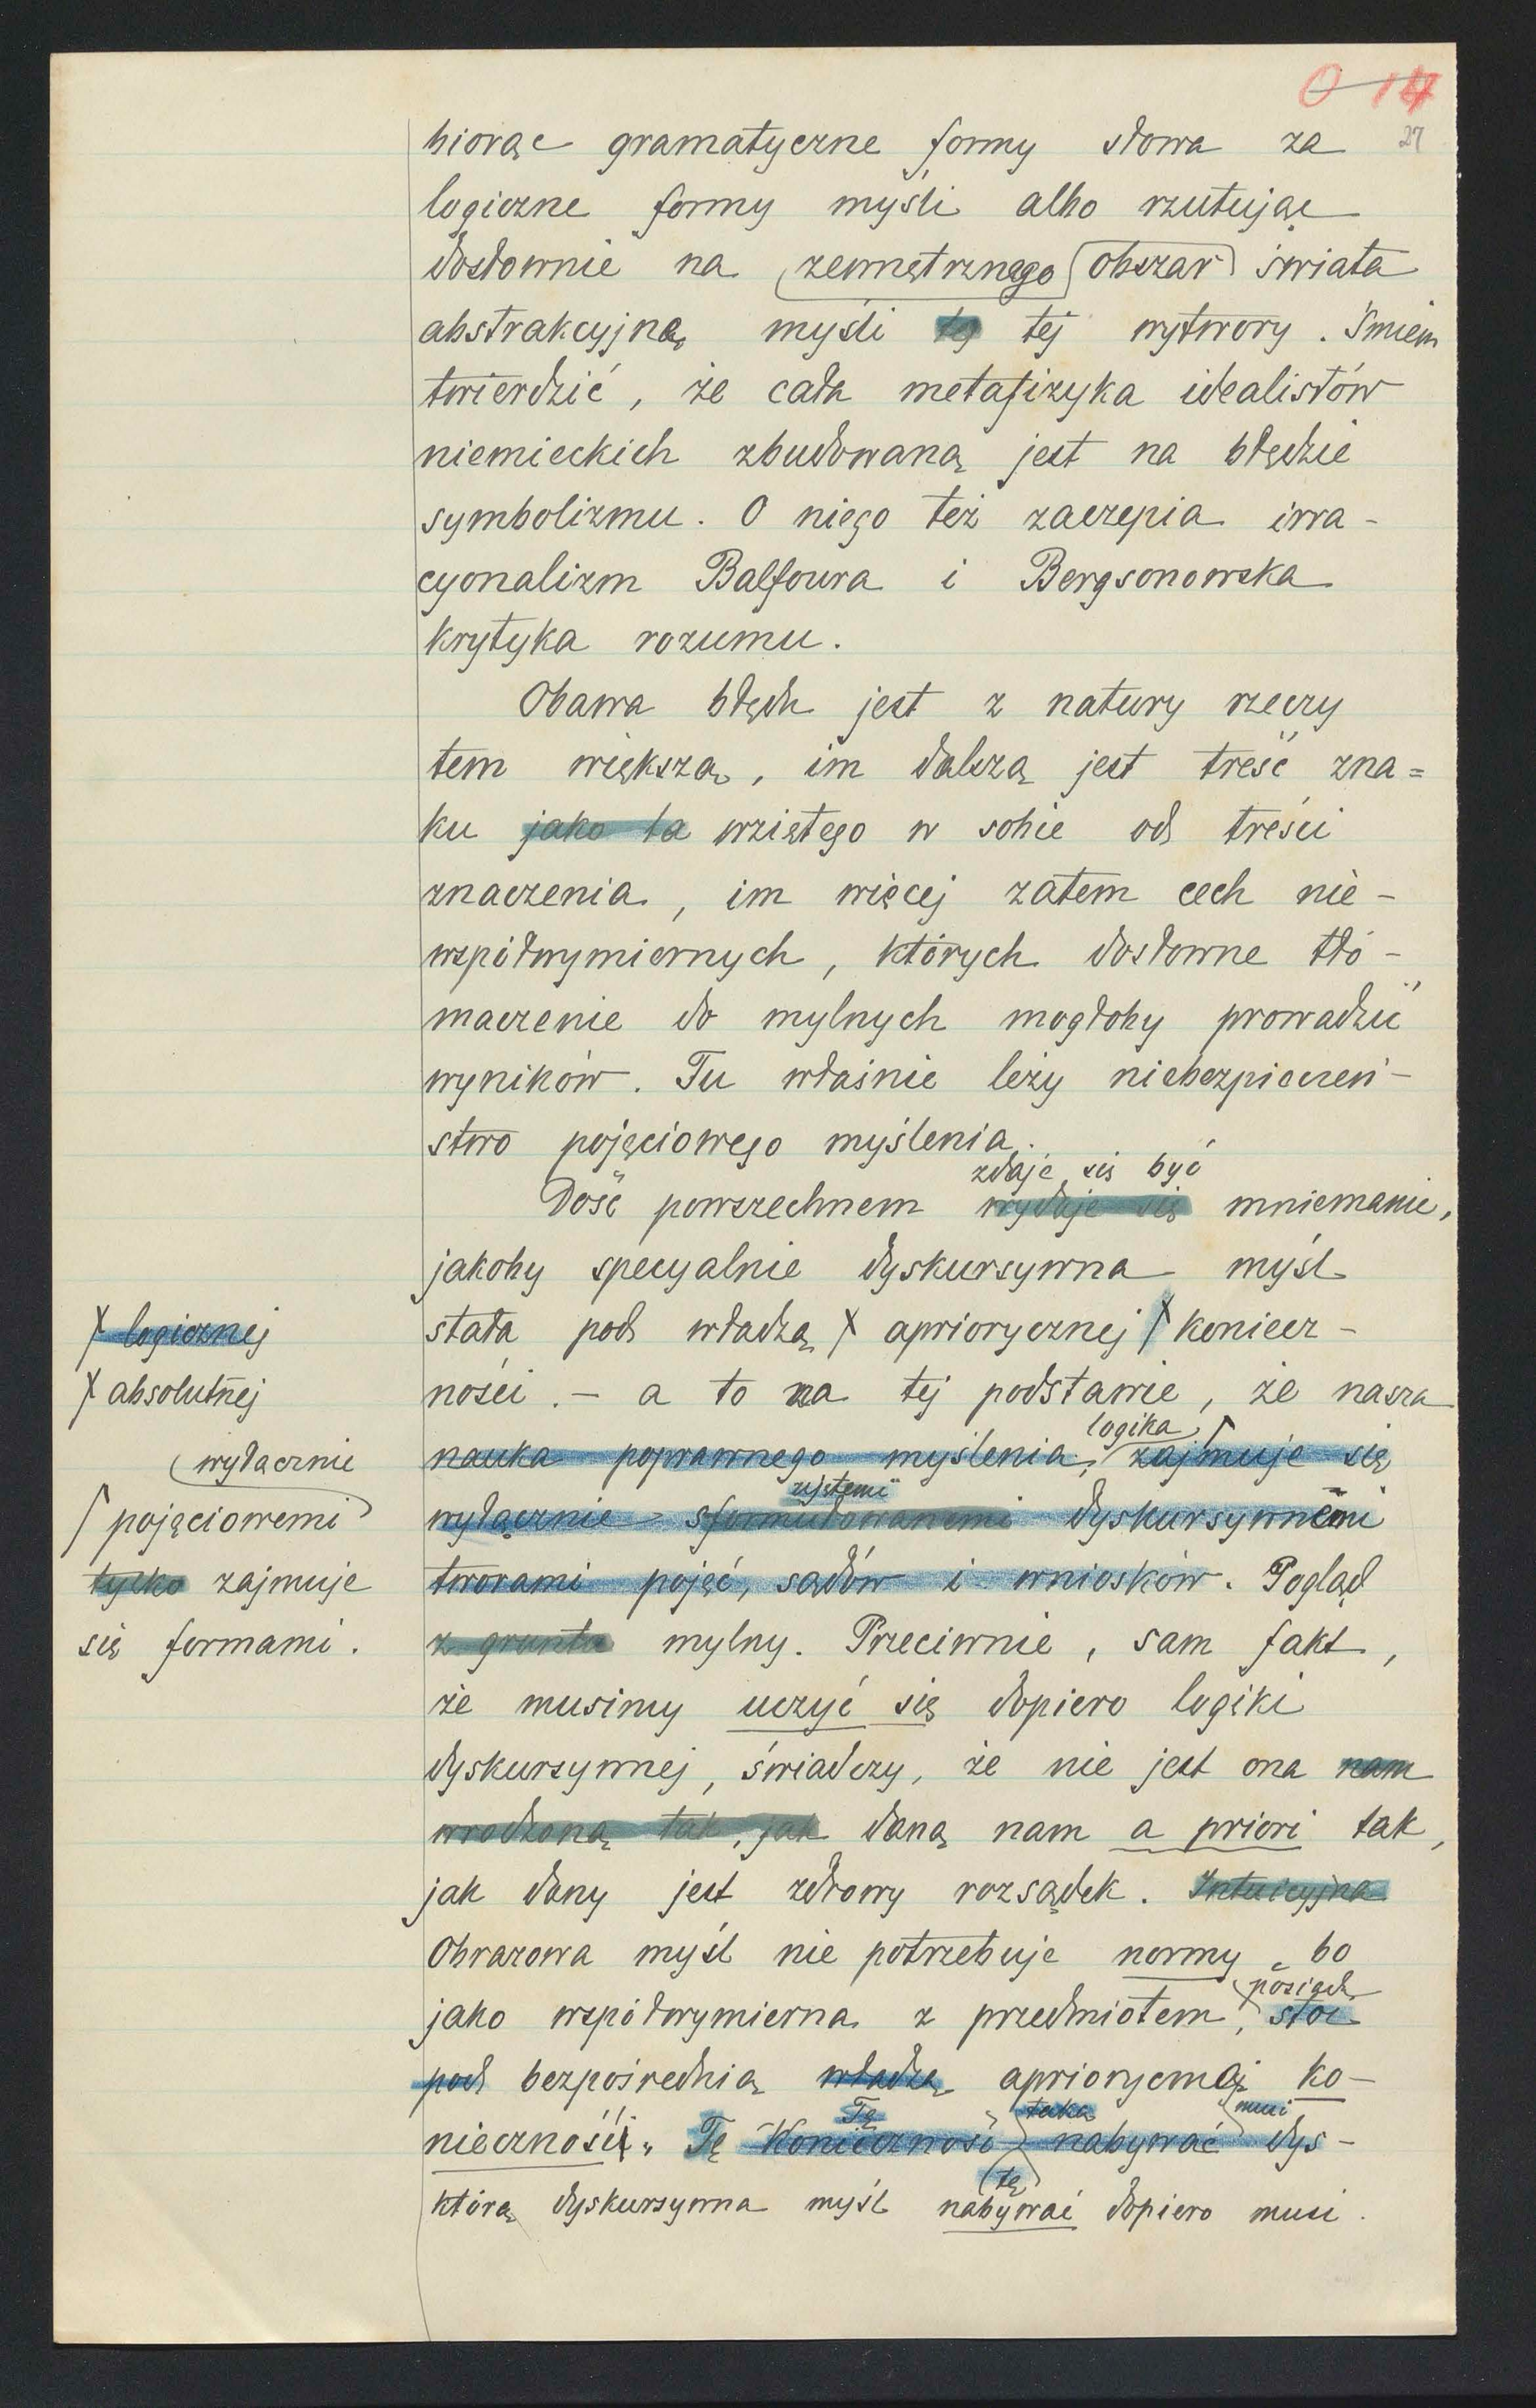 0 14
27
biorąc gramatyczne formy słowa za
logiczne formy myśli albo rzutując
dosłownie na zewnętrznego obszar świata
abstrakcyjną myśli tę tej wytwory. Śmiem
twierdzić, że cała metafizyka idealistów
niemieckich zbudowaną jest na błędzie
symbolizmu. O niego też zaczepia irra-
cyonalizm Balfoura i Bergsonowska
krytyka rozumu.
Obawa błędu jest z natury rzeczy
tem większą, im dalszą jest treść zna=
ku jako ta wziętego w sobie od treści
znaczenia, im więcej zatem cech nie-
współwymiernych, których dosłowne tłó-
maczenie do mylnych mogłoby prowadzić
wyników. Tu właśnie leży niebezpieczeń-
stwo pojęciowego myślenia.
zdaje się być
Dość powszechnem wydaje się mniemanie,
jakoby specyalnie dyskursywna myśl
stała pod władzą X apriorycznej X koniecz-
ności. - a to na tej podstawie, że nasza
logika
nauka poprawnego myślenia, zajmuje się
wyłącznie sformułowanemi dyskursywnemi
tworami pojęć, sądów i wniosków. Pogląd
z gruntu mylny. Przeciwnie, sam fakt,
że musimy uczyć się dopiero logiki
dyskursywnej, świadczy, że nie jest ona nam
wrodzoną tak, jak daną nam a priori tak,
jak dany jest zdrowy rozsądek. Intuicyjna
Obrazowa myśl nie potrzebuje normy, bo
posiada
jako współwymierna z przedmiotem, stoi
pod bezpośrednią władzą apriorycznej ko-
Tę taka musi
nieczności. Tę Konieczność nabywać dys-
tę
którą dyskursywna myśl nabywać dopiero musi.
X logicznej
X absolutnej
wyłącznie
pojęciowemi
tylko zajmuje
się formami.